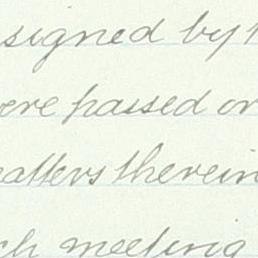 signed by
were passed or
matters therein
ch meeting